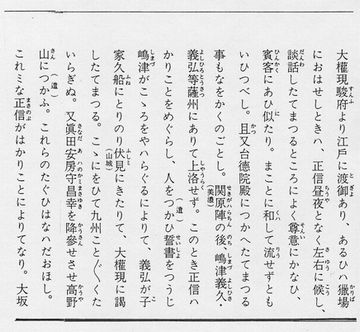 大權現駿府より江戸に渡御あり、あるひハ獵場
におはせしときハ、正信昼夜となく左右に候し、
談話したてまつるところによく尊意にかなひ、
賓客にあひ似たり。まことに和して流せずと
いひつべし。且又台德院殿につかへたてまつる
事もなをかくのごとし。関原陣の後、嶋津義久・
義弘等薩州にありて上洛せず。このとき正信ハ
かりことをめぐらし、人をつかひ誓書をつうじ
嶋津がこゝろをやハらぐるによりて、義弘が子
家久船にとりのり伏見にきたりて、大權現に謁
したてまつる。こゝにをひて九州こと〴〵くた
いらぎぬ。又眞田安房守昌幸を降參せさせ高野
山につかふ。これらのたぐひはなハだおほし。
これミな正信がはかりことによりてなり。大坂